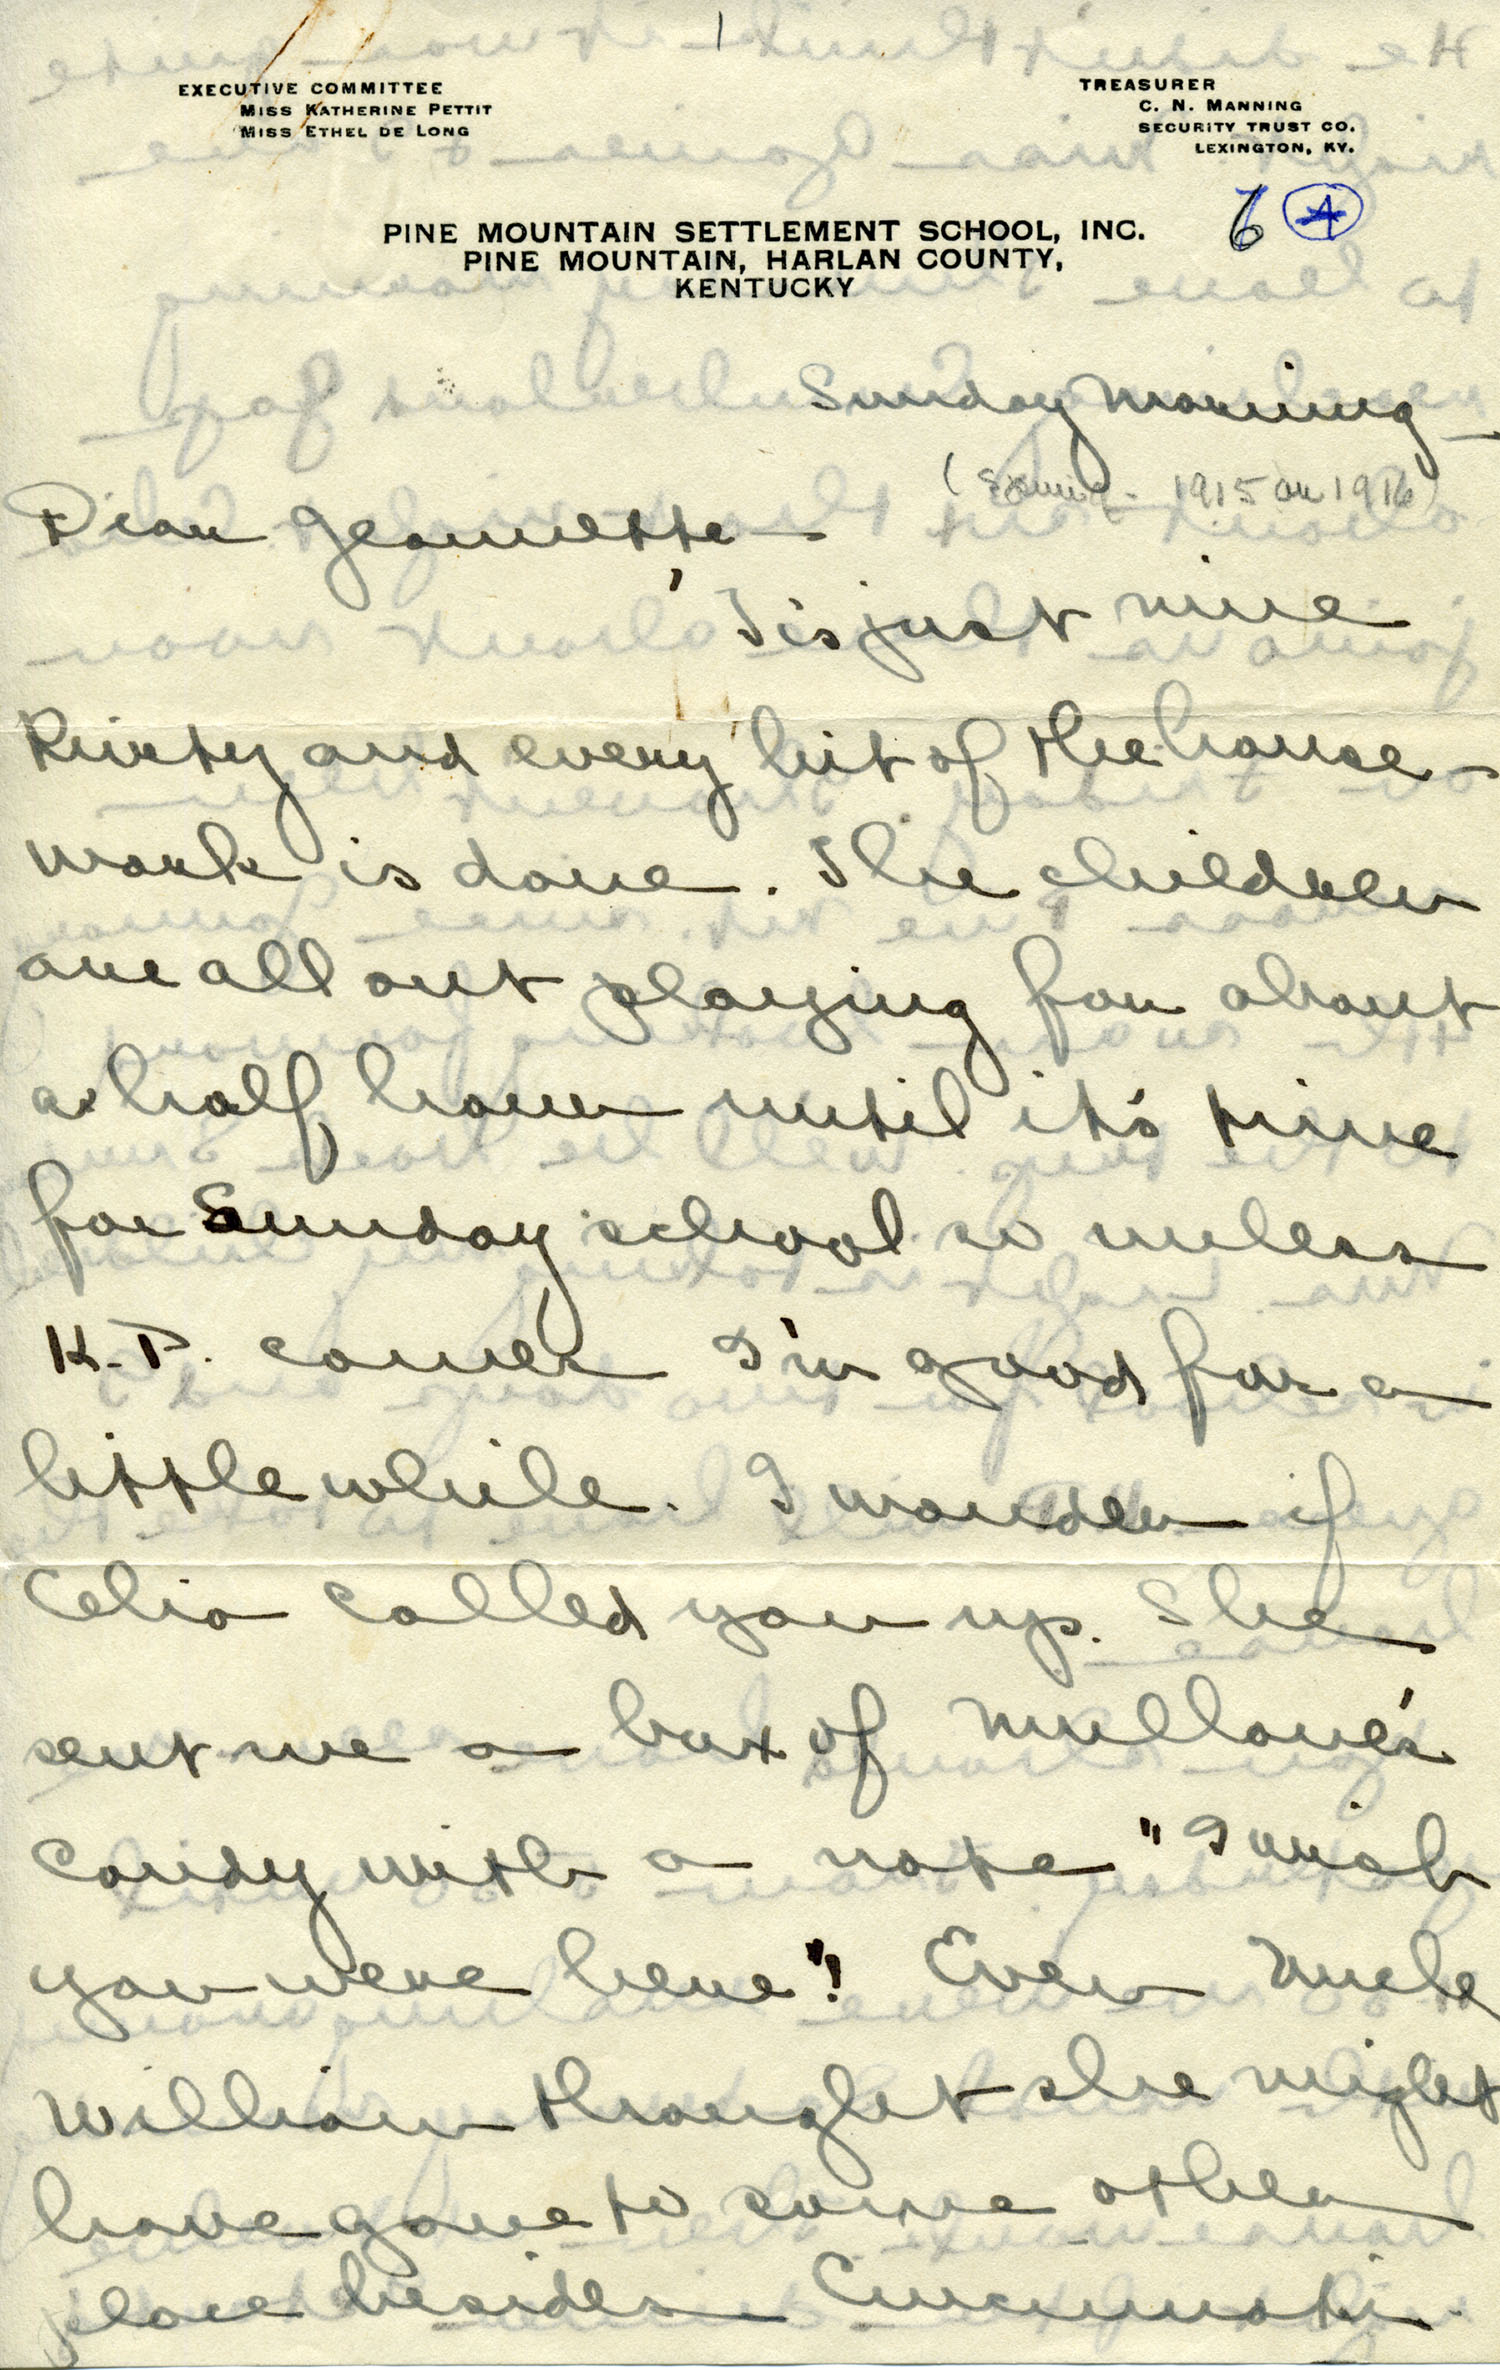 1
EXECUTIVE COMMITTEE
MISS KATHERINE PETTIT
MISS ETHEL DE LONG
TREASURER
C. N. MANNING
SECURITY TRUST CO.
LEXINGTON, KY.
6 4
PINE MOUNTAIN SETTLEMENT SCHOOL, INC.
PINE MOUNTAIN, HARLAN COUNTY,
KENTUCKY
Sunday Morning -
(Spring - 1915 or 1916)
Dear Jeannette -
'Tis just nine
thirty and every bit of the house-
work is done. The children
are all out playing for about
a half hour until it's time
for Sunday school so unless
K.P. comes I'm good for a
little while. I wonder if
Celia called you up. She
sent me a box of Mullane's
candy with a note "I wish
you were here"! Even Uncle
William thought she might
have gone to some other
place besides Cincinnati.